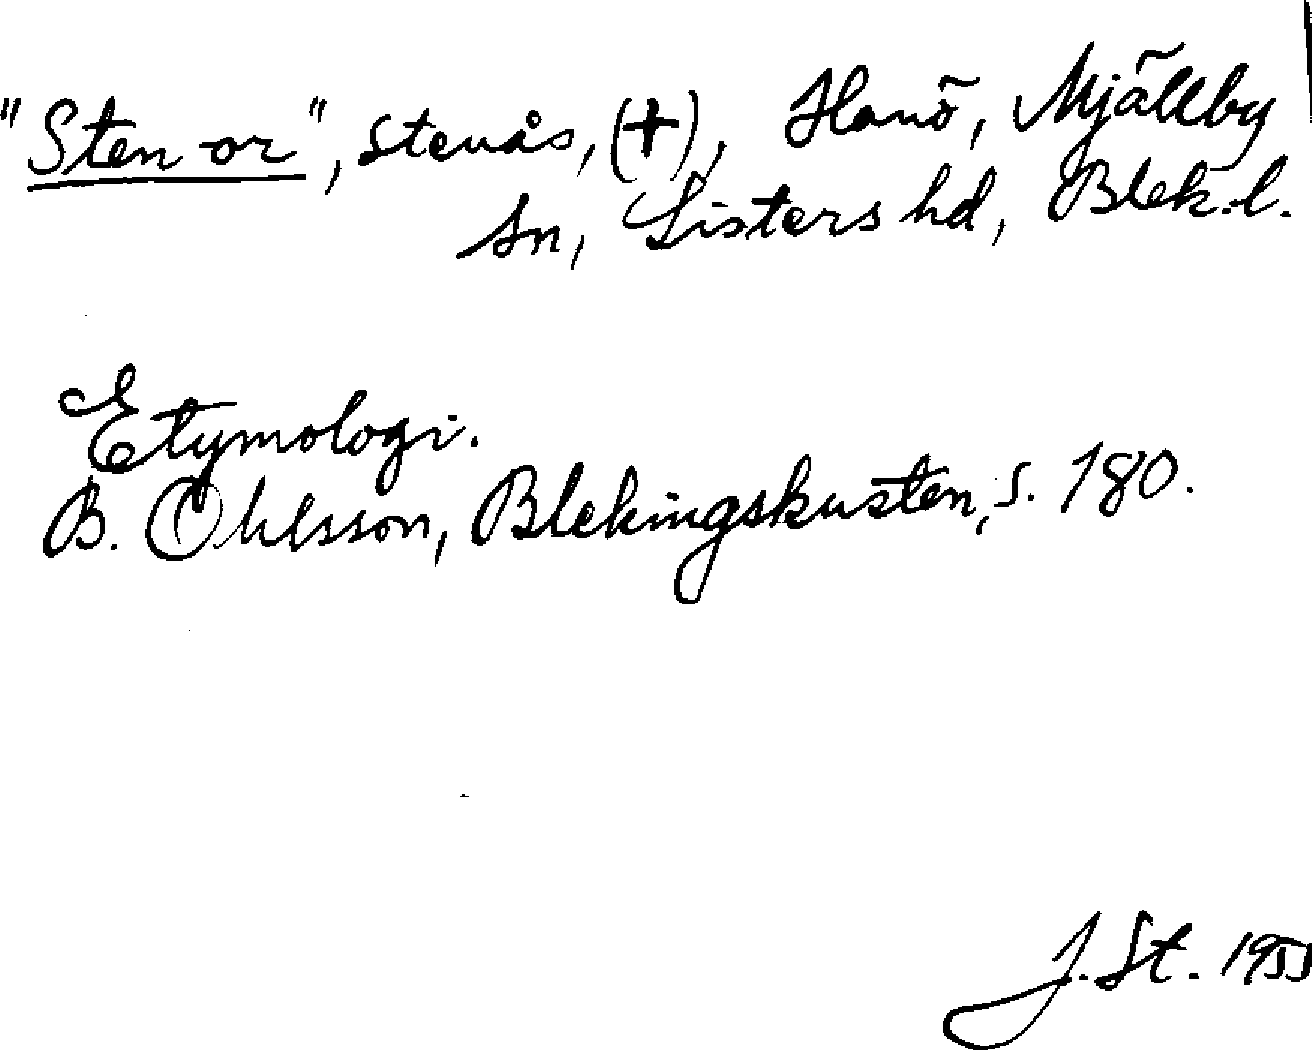 "Sten-or", stenås, (+), Hanö, Mjällby
sn, Listers hd, Blek. l.
Etymologi.
B. Ohlsson, Blekingskusten, s. 180.
J. St. 1955